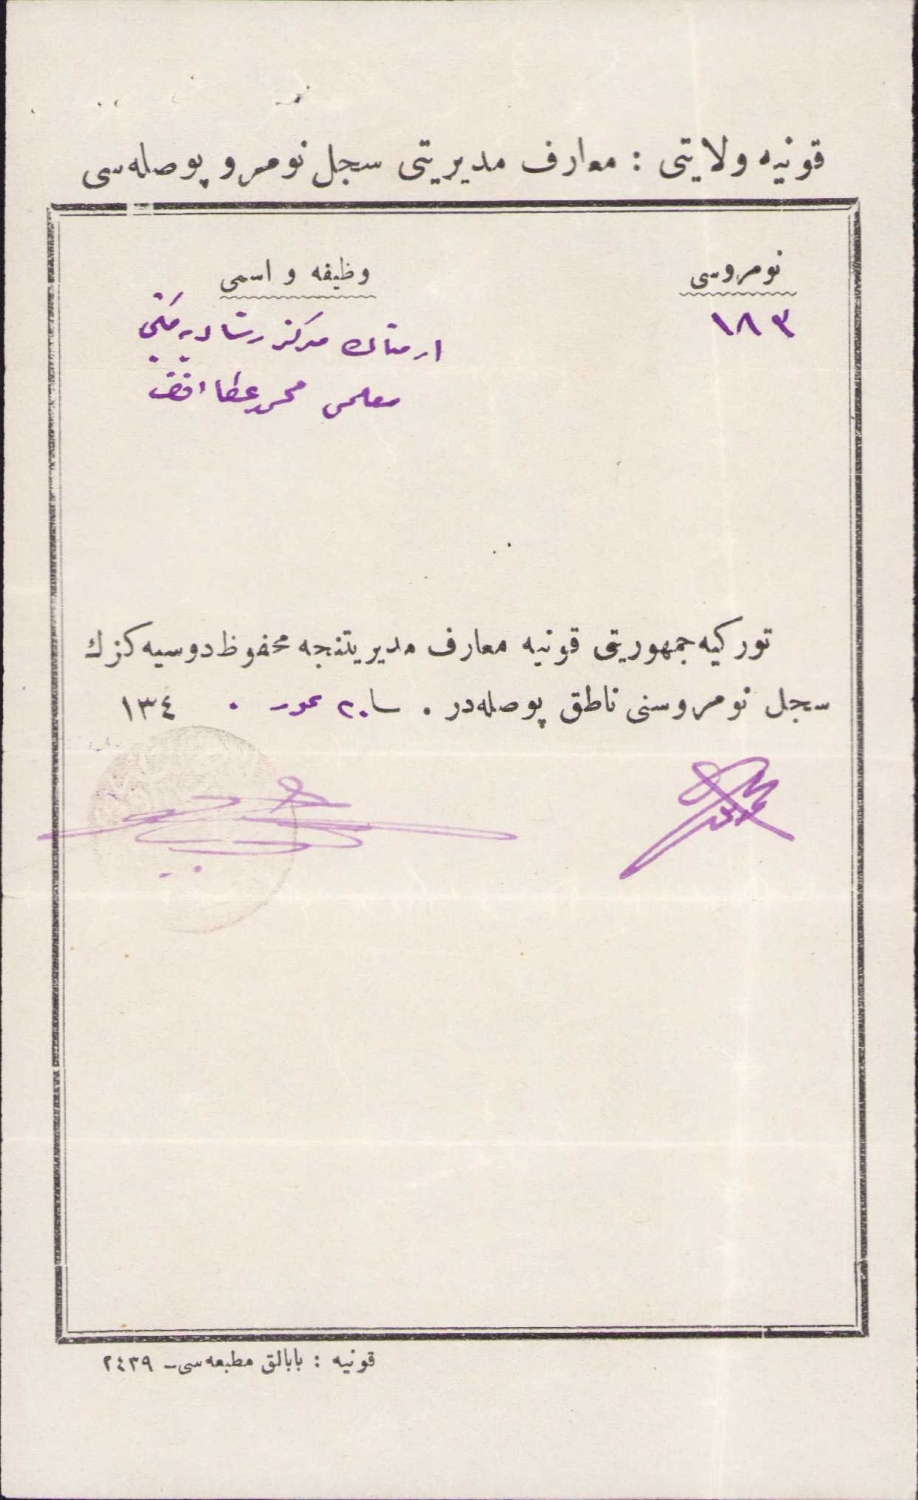 قونیه ولایتی : معارف مدیریتی سجل نومرو پوصله‌سی
نومروسی
وظیفه و اسمی
١٨٣
ارمناك مركز رشادیه مكتبی
معلمی محمد عطا افندی
توركیه جمهوریتی قونیه معارف مدیریتنجه محفوظ دوسیه كزك
سجل نومروسنی ناطق پوصله‌در . ٢٠ تموز ١٣٤٠
قونیه : بابالق مطبعه‌سی – ٢٤٣٩